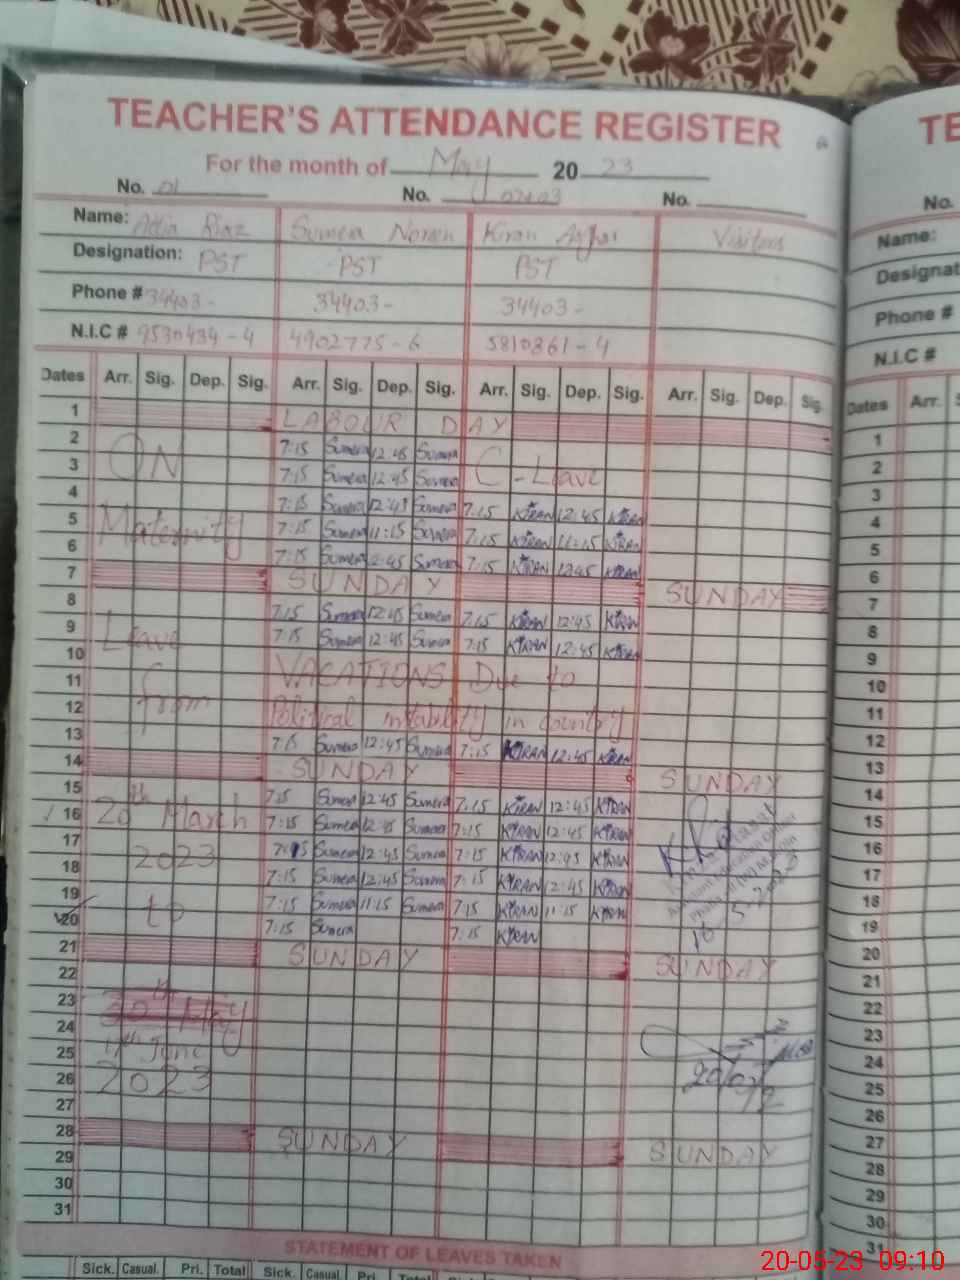 TEACHER'S ATTENDANCE REGISTER
TE
For the month of May 2023
No. 01 No. 02+03 No.
No.
Name: Atia Riaz Sumera Noreen Kiran Asghar Visitors
Name:
Designation: PST PST PST
Designat
Phone # 34403- 34403- 34403-
Phone #
N.I.C # 9530434-4 4902775-6 5810861-4
N.I.C #
Dates Arr. Sig. Dep. Sig. Arr. Sig. Dep. Sig. Arr. Sig. Dep. Sig. Arr. Sig. Dep. Sig.
Dates Arr. S
1 LABOUR DAY 1
2 ON 7:15 Sumera 12:45 Sumera C-Leave 2
3 7:15 Sumera 12:45 Sumera 3
4 Maternity 7:15 Sumera 12:45 Sumera 7:15 KIRAN 12:45 KIRAN 4
5 7:15 Sumera 11:15 Sumera 7:15 KIRAN 11:15 KIRAN 5
6 7:15 Sumera 12:45 Sumera 7:15 KIRAN 12:45 KIRAN 6
7 SUNDAY SUNDAY 7
8 7:15 Sumera 12:45 Sumera 7:15 KIRAN 12:45 KIRAN 8
9 Leave 7:15 Sumera 12:45 Sumera 7:15 KIRAN 12:45 KIRAN 9
10 VACATIONS Due to 10
11 from 11
12 Political instability in country 12
13 7:15 Sumera 12:45 Sumera 7:15 KIRAN 12:45 KIRAN 13
14 SUNDAY SUNDAY 14
15 7:15 Sumera 12:45 Sumera 7:15 KIRAN 12:45 KIRAN 15
16 20th March 7:15 Sumera 12:45 Sumera 7:15 KIRAN 12:45 KIRAN 16
17 2023 7:15 Sumera 12:45 Sumera 7:15 KIRAN 12:45 KIRAN 17
18 7:15 Sumera 12:45 Sumera 7:15 KIRAN 12:45 KIRAN 18
19 to 7:15 Sumera 11:15 Sumera 7:15 KIRAN 11:15 KIRAN 16-5-2023 19
20 7:15 Sumera 7:15 KIRAN 20
21 SUNDAY SUNDAY 21
22 22
23 30th May 23
24 17th June 24
25 2023 25
26 26
27 27
28 SUNDAY SUNDAY 28
29 29
30 30
31 31
STATEMENT OF LEAVES TAKEN
Sick. Casual. Pri. Total Sick. Casual. Pri. Total Sick. Casual. Pri.
20-05-23 09:10